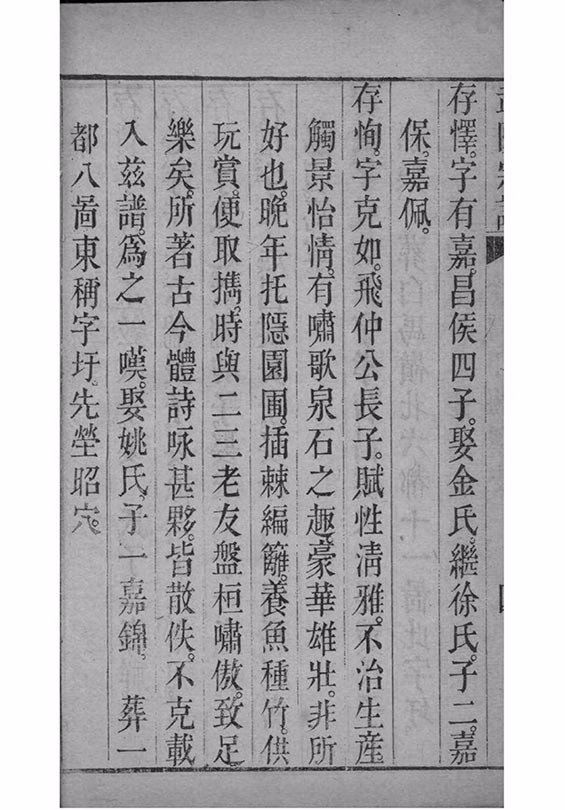 存懌。字有嘉。昌侯四子。娶金氏。繼徐氏。子二。嘉
保。嘉佩。
存恂。字克如。飛仲公長子。賦性清雅。不治生産
觸景怡情。有嘯歌泉石之趣。豪華雄壯。非所
好也。晩年托隱園圃。插棘編籬。養魚種竹。供
玩賞。便取擕。時與二三老友盤桓嘯傲。致足
樂矣。所著古今體詩咏甚夥。皆散佚。不克載
入茲譜。爲之一嘆。娶姚氏。子一嘉錦。葬一
都八啚東稱字圩。先塋昭穴。